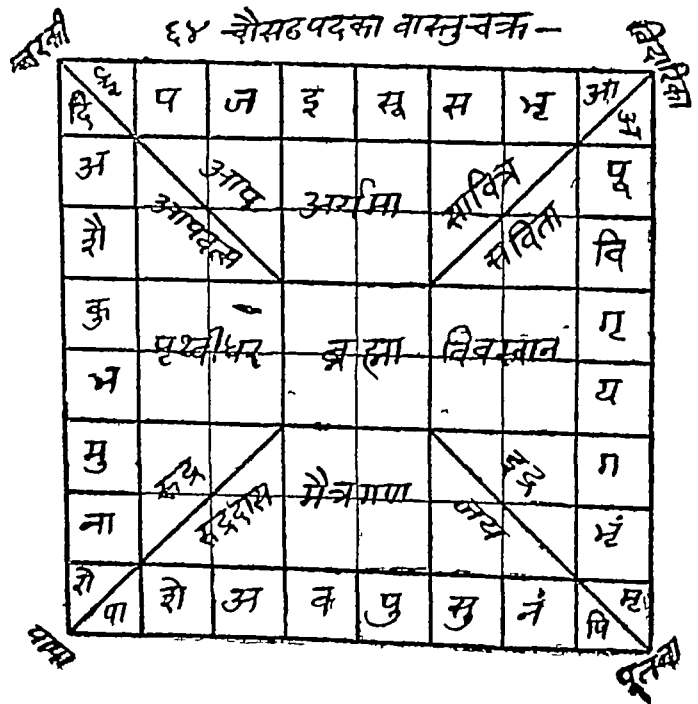 ६४ चौसठ पदका वास्तुचक्र –
चरकी
विदारिका
ई प ज इ सू स भृ आ
दि अ
अ आप अर्यमा सावित्र पू
शै आपवत्स सविता वि
कु गृ
पृथ्वीधर ब्रह्मा विवस्वान
भ य
मु रुद्र मैत्रगण इंद्र ग
ना रुद्रदास जय भृं
रो मृ
पा शो अ व पु सु नं पि
पापा
पूतना